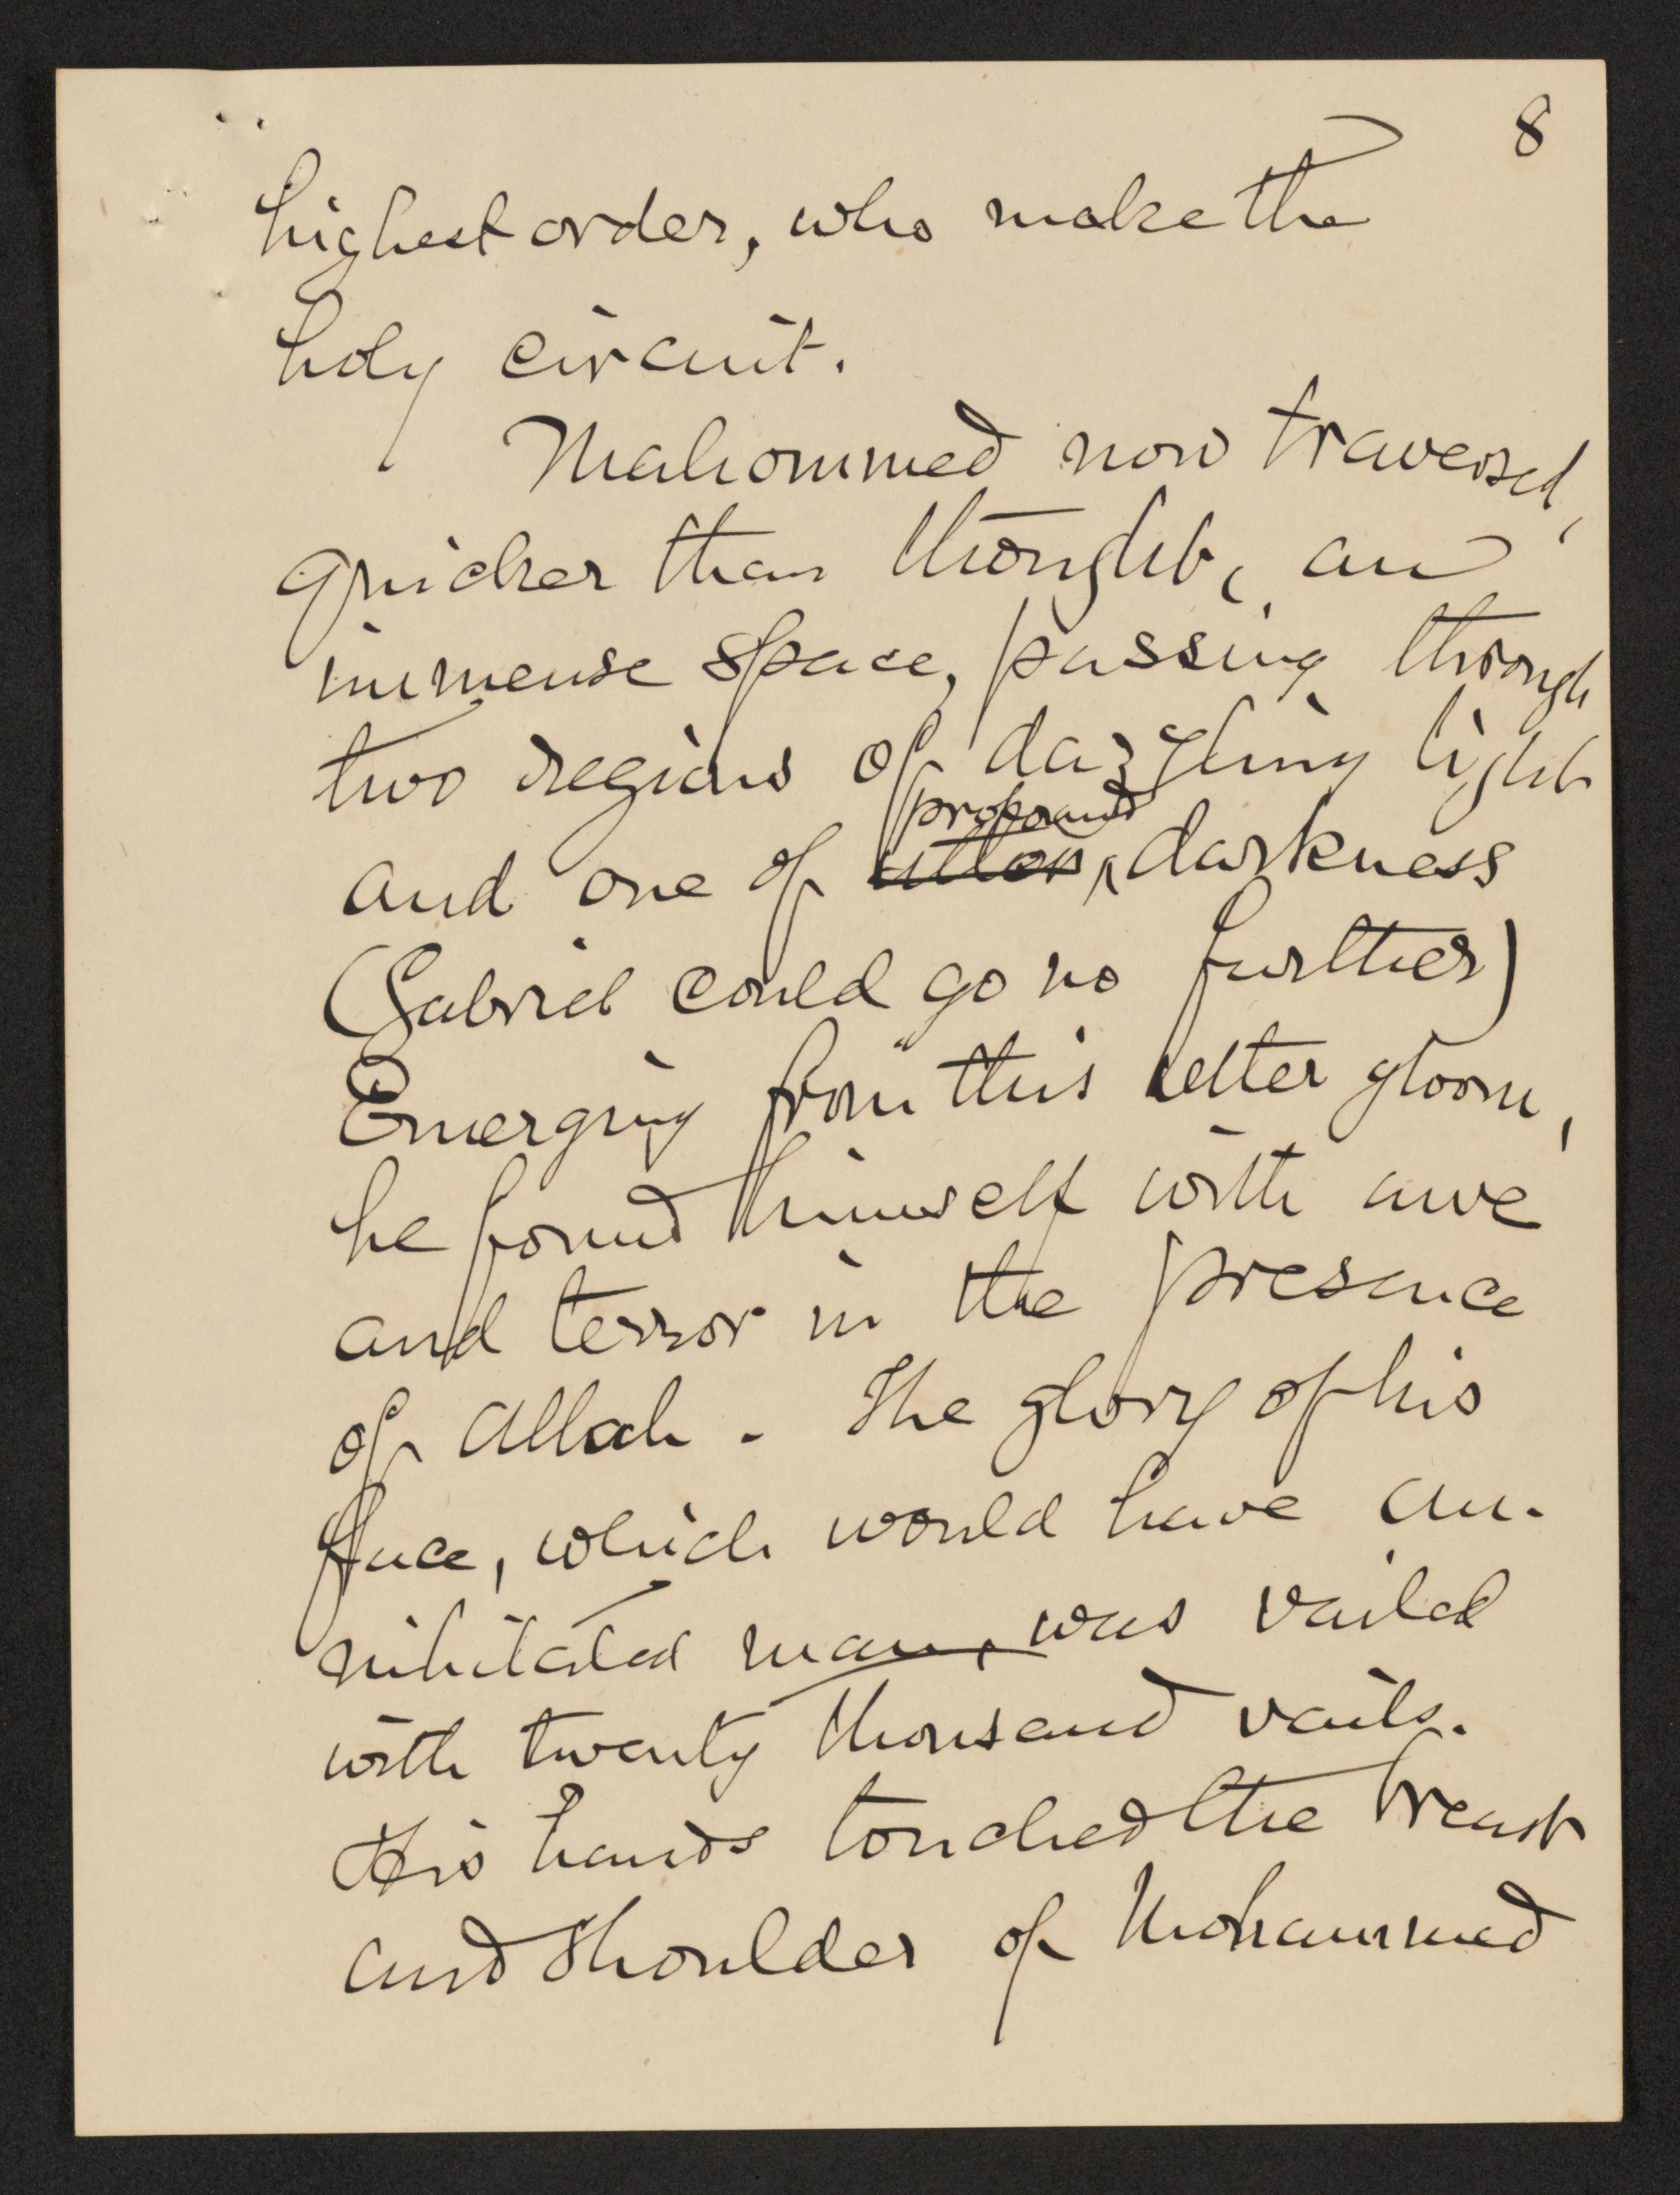 8
highest order, who make the
holy circuit.
Mahommed now traversed,
quicker than thought, an
immense space, passing through
two regions of dazzling light
profound
and one of utter darkness
(Gabriel could go no further)
Emerging from this utter gloom,
he found himself with awe
and terror in the presence
of Allah. The glory of his
face, which would have an-
nihilated man, was vailed
with twenty thousand vails.
His hands touched the breast
and shoulder of Mohammed